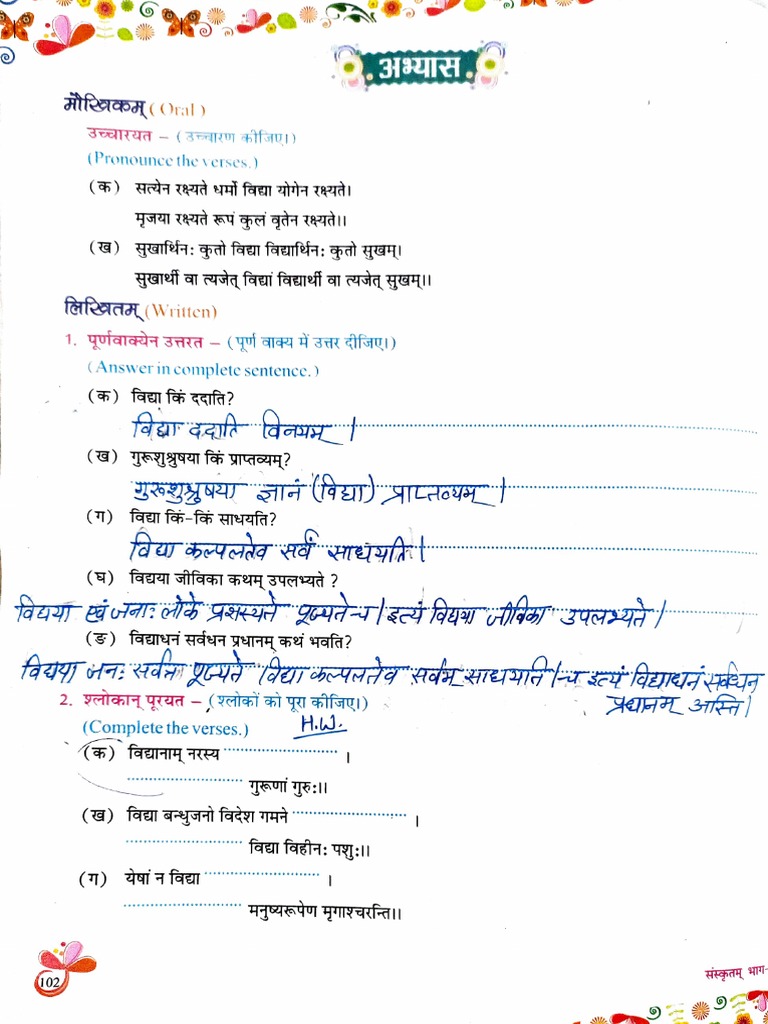 अभ्यास
मौखिकम् (Oral)
उच्चारयत – (उच्चारण कीजिए।)
(Pronounce the verses.)
(क) सत्येन रक्ष्यते धर्मो विद्या योगेन रक्ष्यते।
मृजया रक्ष्यते रूपं कुलं वृतेन रक्ष्यते।।
(ख) सुखार्थिन: कुतो विद्या विद्यार्थिन: कुतो सुखम्।
सुखार्थी वा त्यजेत् विद्यां विद्यार्थी वा त्यजेत् सुखम्।।
लिखितम् (Written)
1. पूर्णवाक्येन उत्तरत – (पूर्ण वाक्य में उत्तर दीजिए।)
(Answer in complete sentence.)
(क) विद्या किं ददाति?
विद्या ददाति विनयम् ।
(ख) गुरूशुश्रुषया किं प्राप्तव्यम्?
गुरूशुश्रुषया ज्ञानं (विद्या) प्राप्तव्यम् ।
(ग) विद्या किं-किं साधयति?
विद्या कल्पलतेव सर्वं साधयति ।
(घ) विद्यया जीविका कथम् उपलभ्यते ?
विद्यया जनाः लोके प्रशस्यते पूज्यते च । इत्यं विद्यया जीविका उपलभ्यते ।
(ङ) विद्याधनं सर्वधन प्रधानम् कथं भवति?
विद्यया जनः सर्वत्र पूज्यते विद्या कल्पलतेव सर्वम् साधयति । च इत्यं विद्याधनं सर्वधन
प्रधानम् अस्ति ।
2. श्लोकान् पूरयत – (श्लोकों को पूरा कीजिए।)
(Complete the verses.) H.W.
(क) विद्यानाम् नरस्य .................... ।
.................... गुरूणां गुरु:।।
(ख) विद्या बन्धुजनो विदेश गमने .................... ।
.................... विद्या विहीन: पशु:।।
(ग) येषां न विद्या .................... ।
.................... मनुष्यरूपेण मृगाश्चरन्ति।।
102
संस्कृतम् भाग-